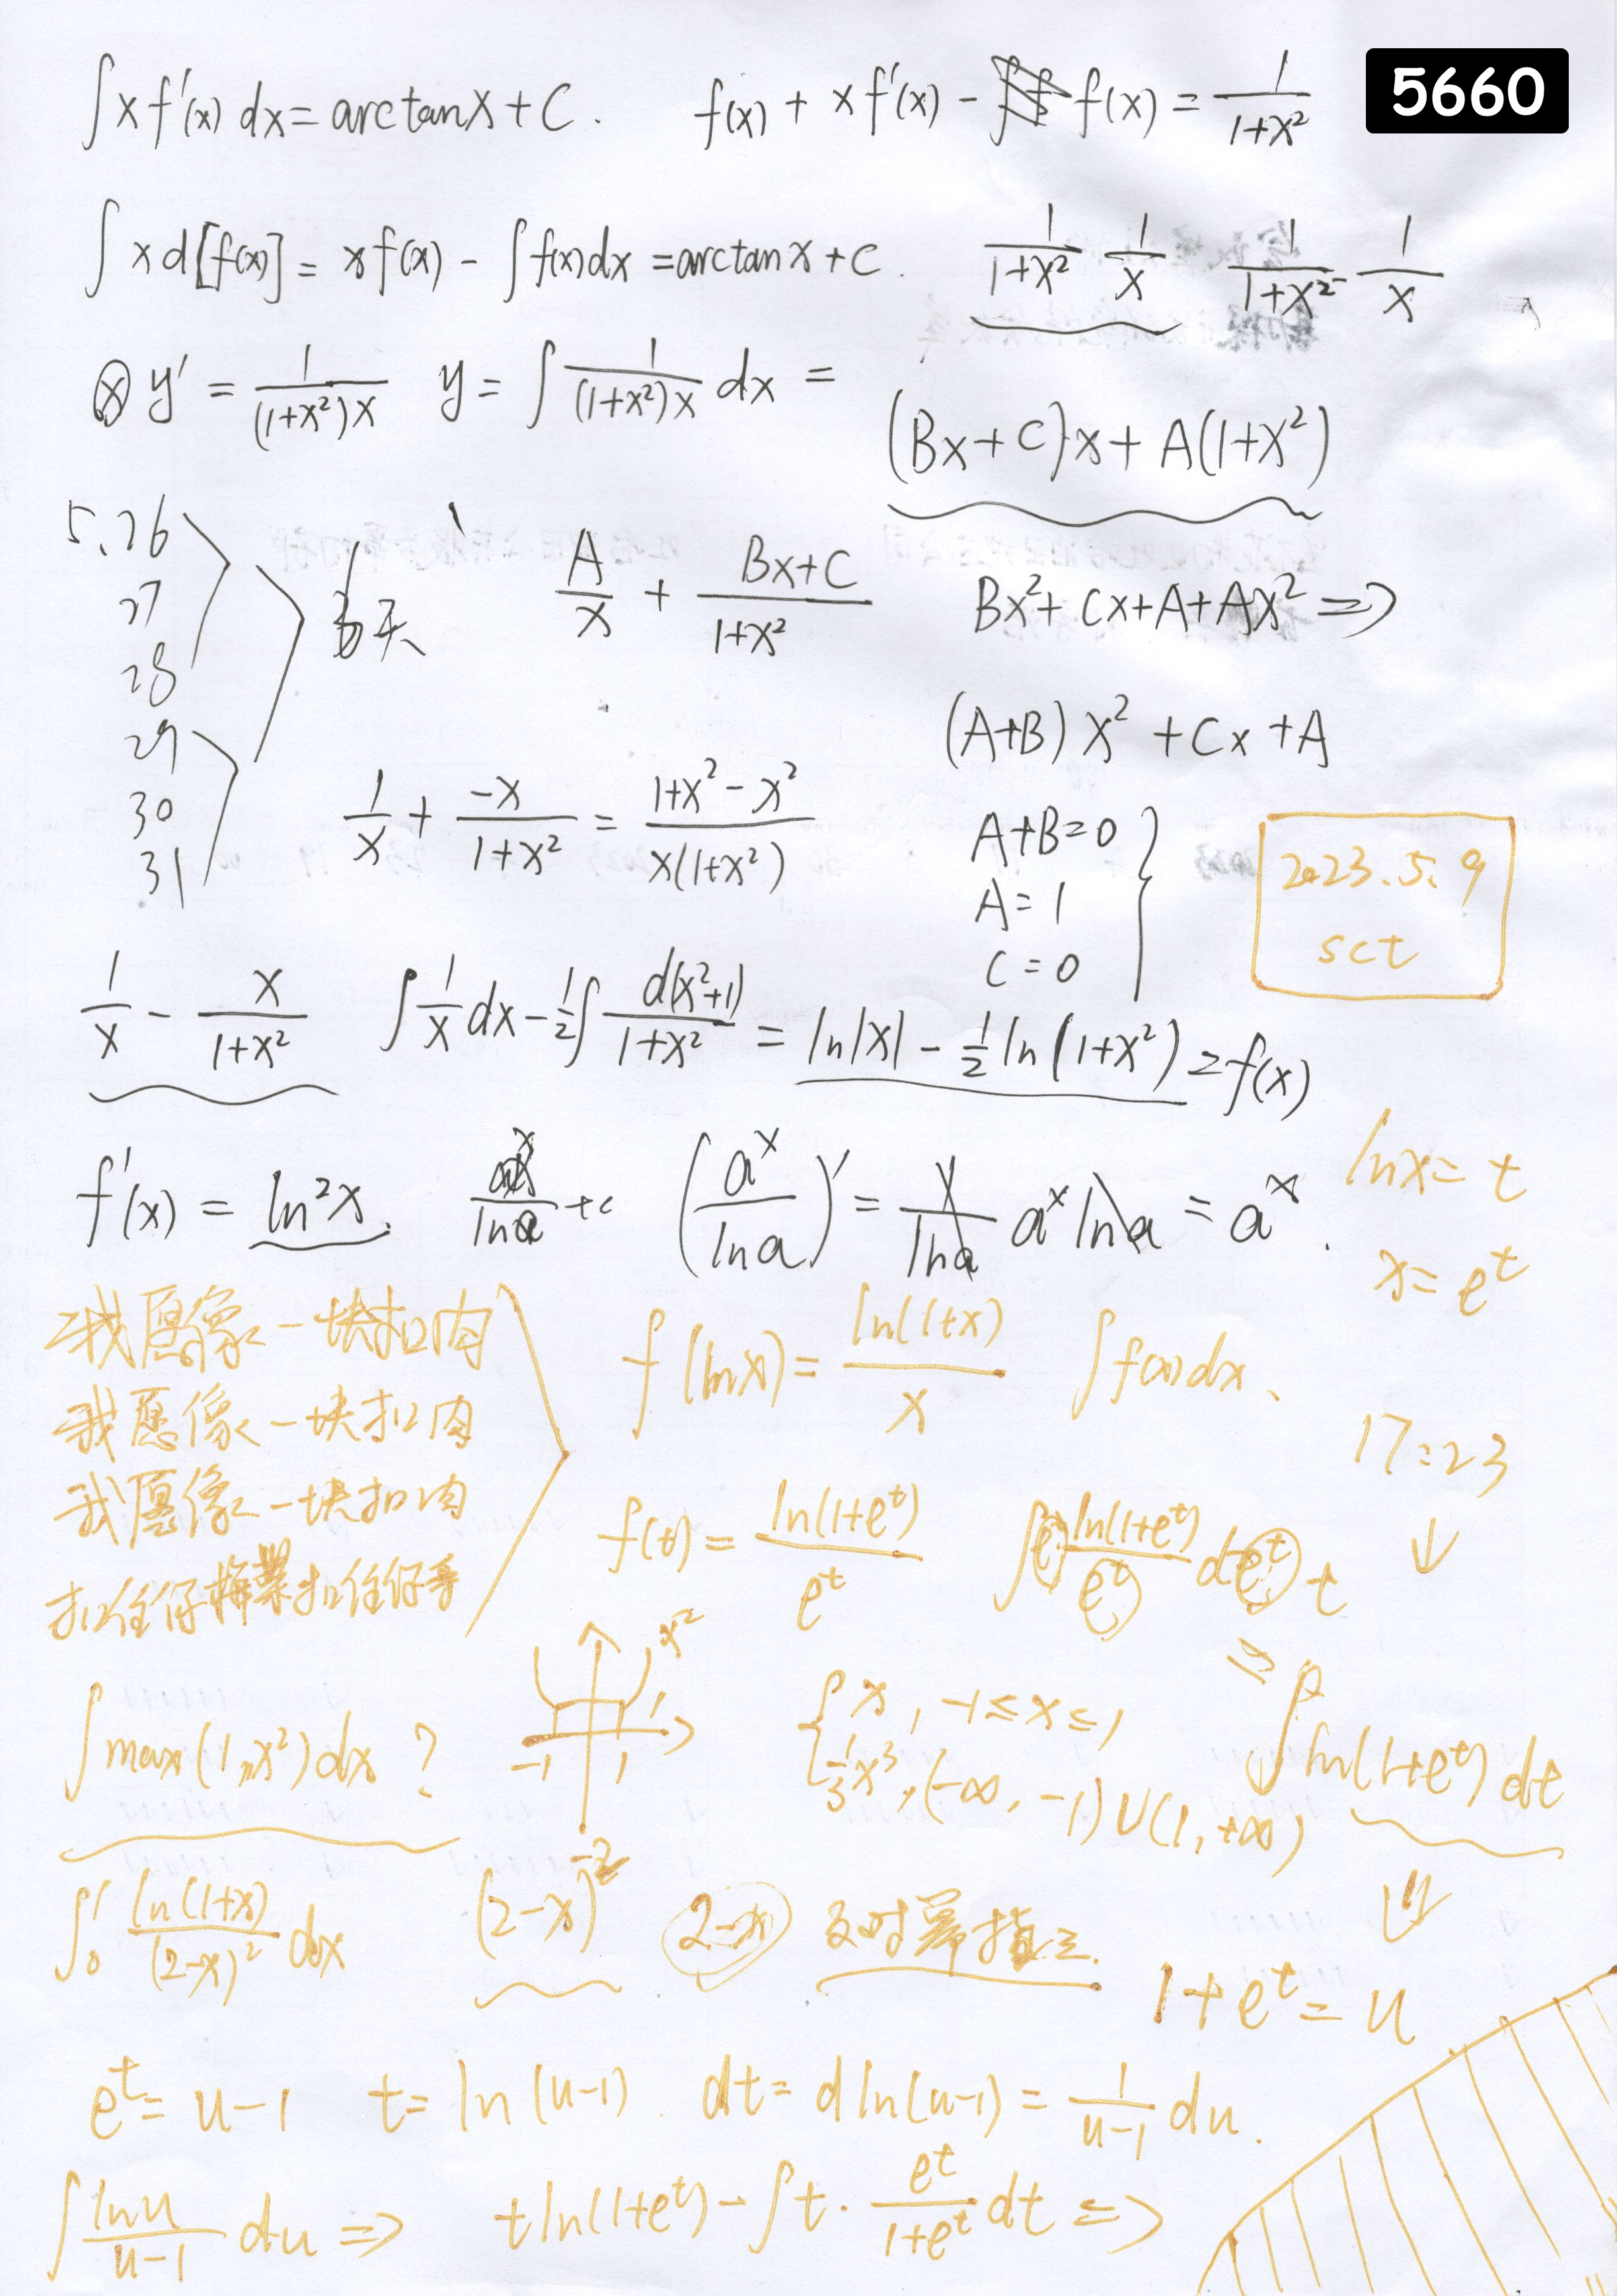 5660
∫xf'(x)dx=arctanx+C. f(x)+xf'(x)-f(x)=1/(1+x²)
∫xd[f(x)]=xf(x)-∫f(x)dx=arctanx+C. 1/(1+x²) 1/x 1/(1+x²) 1/x
y'=1/((1+x²)x) y=∫1/((1+x²)x)dx=
(Bx+C)x+A(1+x²)
5.26
27
28
29
30
31
6天
A/x+(Bx+C)/(1+x²) Bx²+Cx+A+Ax²=>
(A+B)x²+Cx+A
1/x+(-x)/(1+x²)=(1+x²-x²)/(x(1+x²))
A+B=0
A=1
C=0
2023.5.9
sct
1/x-x/(1+x²) ∫1/x dx-1/2∫d(x²+1)/(1+x²)=ln|x|-1/2ln(1+x²)=f(x)
f'(x)=ln²x. a^x/lna+c (a^x/lna)'=1/lna a^x lna=a^x.
lnx=t
x=e^t
我愿像一块扣肉
我愿像一块扣肉
我愿像一块扣肉
扣住你梅菜扣住你手
f(lnx)=ln(1+x)/x ∫f(x)dx.
17:23
f(t)=ln(1+e^t)/e^t ∫e^t ln(1+e^t)/e^t de^t t
=∫ln(1+e^t)dt
∫max(1,x²)dx? x² 1 -1 1
{x, -1≤x≤1
1/3x³, (-∞,-1)∪(1,+∞)
∫₀¹ln(1+x)/(2-x)²dx (2-x)^-2 2-x 反对幂指三.
1+e^t=u
e^t=u-1 t=ln(u-1). dt=dln(u-1)=1/(u-1)du.
∫lnu/(u-1)du=> tln(1+e^t)-∫t·e^t/(1+e^t)dt=>